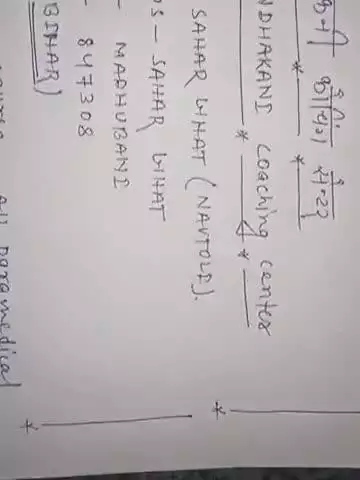 कोचिंग सेन्टर
NDHAKAND Coaching Center
SAHAR GHAT (NAVTOLE).
OS - SAHAR GHAT
- MADHUBANI
- 847308
BIHAR)
All paramedical